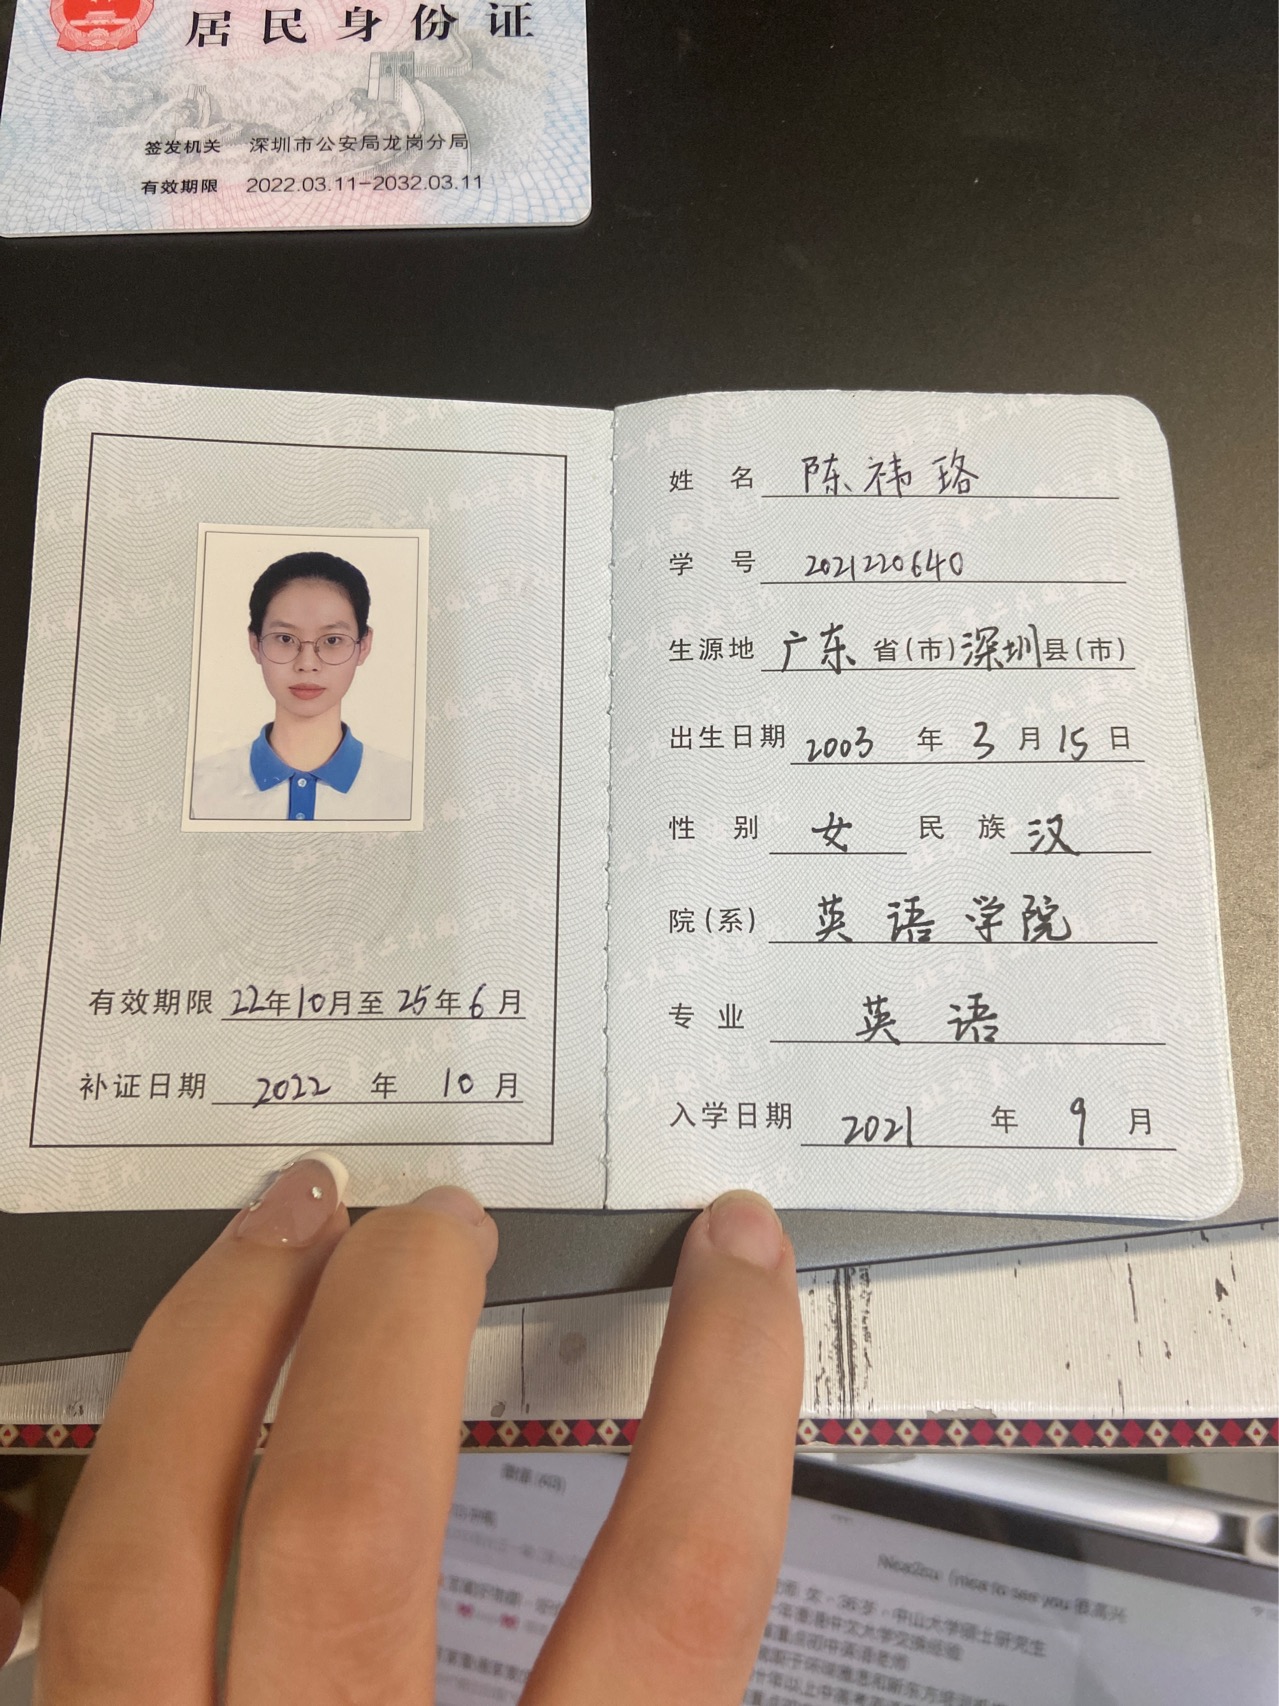 居民身份证
签发机关 深圳市公安局龙岗分局
有效期限 2022.03.11-2032.03.11
有效期限 22年10月至25年6月
补证日期 2022年10月
姓名 陈祎珞
学号 2021220640
生源地 广东省(市)深圳县(市)
出生日期 2003年3月15日
性别 女 民族 汉
院(系) 英语学院
专业 英语
入学日期 2021年9月